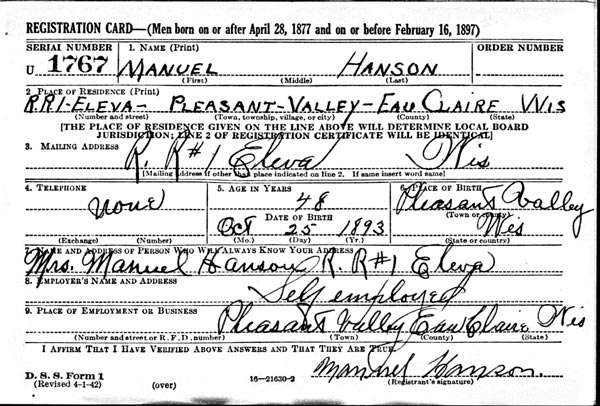 REGISTRATION CARD—(Men born on or after April 28, 1877 and on or before February 16, 1897)
SERIAL NUMBER 1. NAME (Print) ORDER NUMBER
U 1767 MANUEL HANSON
(First) (Middle) (Last)
2. PLACE OF RESIDENCE (Print)
R.R1-ELEVA- PLEASANT-VALLEY-EAU CLAIRE WIS
(Number and street) (Town, township, village, or city) (County) (State)
[THE PLACE OF RESIDENCE GIVEN ON THE LINE ABOVE WILL DETERMINE LOCAL BOARD
JURISDICTION; LINE 2 OF REGISTRATION CERTIFICATE WILL BE IDENTICAL]
3. MAILING ADDRESS
R. R#1 Eleva Wis
[Mailing address if other than place indicated on line 2. If same insert word same]
4. TELEPHONE 5. AGE IN YEARS 6. PLACE OF BIRTH
none 48 Pleasant Valley
DATE OF BIRTH (Town or county)
Oct 25 1893 Wis
(Exchange) (Number) (Mo.) (Day) (Yr.) (State or country)
7. NAME AND ADDRESS OF PERSON WHO WILL ALWAYS KNOW YOUR ADDRESS
Mrs. Manuel Hanson R. R#1 Eleva
8. EMPLOYER'S NAME AND ADDRESS
Self employed
9. PLACE OF EMPLOYMENT OR BUSINESS
Pleasant Valley Eau Claire Wis
(Number and street or R. F. D. number) (Town) (County) (State)
I AFFIRM THAT I HAVE VERIFIED ABOVE ANSWERS AND THAT THEY ARE TRUE.
Manuel Hanson.
D. S. S. Form 1
(Revised 4-1-42) (over) 16—21630-2 (Registrant's signature)